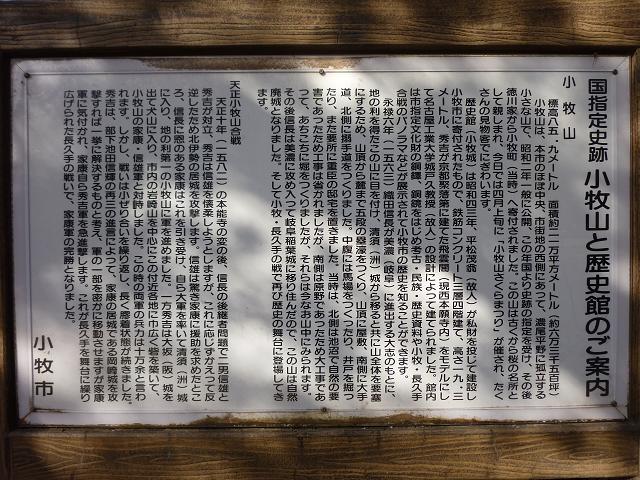 国指定史跡 小牧山と歴史館のご案内
小牧山
標高八五・九メートル 面積約二一万平方メートル（約六万三千五百坪）
小牧山は、本市のほぼ中央、市街地の西側にあって、濃尾平野に孤立する
小さな山で、昭和二年一般に公開、この年国より史跡の指定を受け、その後
徳川家から小牧町（当時）へ寄付されました。この山は古くから桜の名所と
して親しまれ、今日では四月上旬に「小牧山さくらまつり」が催され、たく
さんの見物客でにぎわいます。
歴史館（小牧城）は昭和四三年、平松茂翁（故人）が私財を投じて建設し
小牧市に寄付されたもので、鉄筋コンクリート三層四階建て、高さ一九・三
メートル、秀吉が京都聚落第に建てた飛雲閣（現西本願寺内）をモデルにし
て名古屋工業大学城戸久教授（故人）の設計によって建てられました。館内
は市指定文化財の銅鐸、銅鏡をはじめ考古・民族・歴史資料や小牧・長久手
合戦のパノラマなどが展示されて小牧市の歴史を知ることができます。
永禄六年（一五六三）織田信長が美濃（岐阜）に進出する大志のもとに、
地の利を得たこの山に目を付け、清須（洲）城から移ると共に山全体を要塞
にするため、山頂から麓まで五段の塁濠をつくり、山頂に屋敷、南側に大手
道、北側に搦手道をつくりました。中腹には馬場をつくったり、井戸を掘っ
たり、また要所に重臣の邸宅を置きました。当時は、北側は池沼で自然の要
害であったため工事は省かれましたが、南側は原野であったため大工事であ
って、あちこちに堀をつくりましたが、それらは今なお山中にみられます。
その後信長は美濃に攻め入って岐阜稲葉城に移り住んだので、この山は自然
廃城となりました。そして小牧・長久手の戦で再び歴史の舞台に登場してき
ます。
天正小牧山合戦
天正十年（一五八二）の本能寺の変の後、信長の後継者問題で二男信雄と
秀吉が対立、秀吉は信雄を懐柔しようとしますが、これに応じずかえって反
逆したため北伊勢の居城を攻撃します。信雄は驚き家康に援助を求めたとこ
ろ、信長に恩のある家康はこれを引き受け、自ら大軍を率して清須（洲）城
に入り、地の利第一の小牧山に軍を進めました。一方秀吉は大坂（阪）城を
出て犬山に入り、市内の岩崎山を中心にこの付近各地に片広く砦を築いて、
小牧山の家康・信雄軍と対陣しました。この時の両軍の兵力は十万とも言わ
れます。しかし、戦いは小ぜり合いを繰り返し、長く膠着状態が続きました。
秀吉は、部下池田信輝の再三の進言によって、家康の居城である岡崎城を攻
撃すれば一挙に解決するものと考え、軍の一部を密かに移動させますが家康
軍に気付かれ、家康自ら秀吉軍を急進撃します。これが長久手を舞台に繰り
広げられた長久手の戦いで、家康軍の完勝となりました。
小牧市